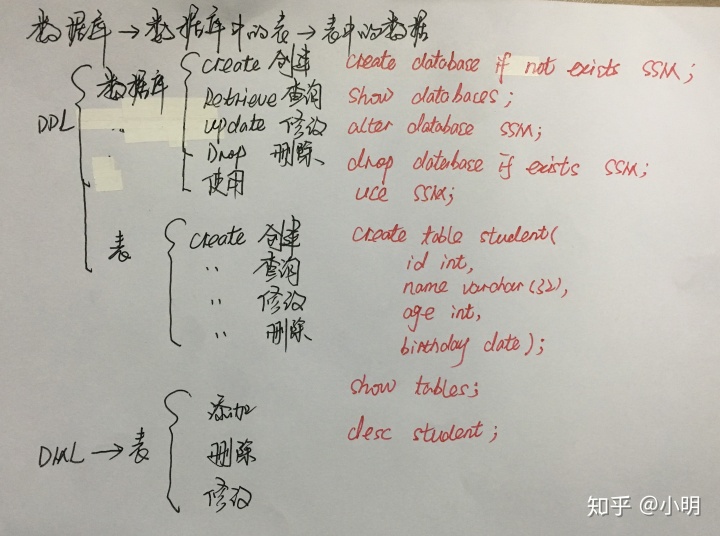 数据库→数据库中的表→表中的数据
DDL 数据库 create 创建 create database if not exists SSM;
Retrieve 查询 show databaces;
〃 update 修改 alter database SSM;
Drop 删除 drop database if exists SSM;
使用 use SSM;
表 create 创建 create table student(
〃 查询 id int,
〃 修改 name varchar(32),
age int,
〃 删除 birthday date);
show tables;
DML→表 添加 desc student;
删除
修改
知乎 @小明